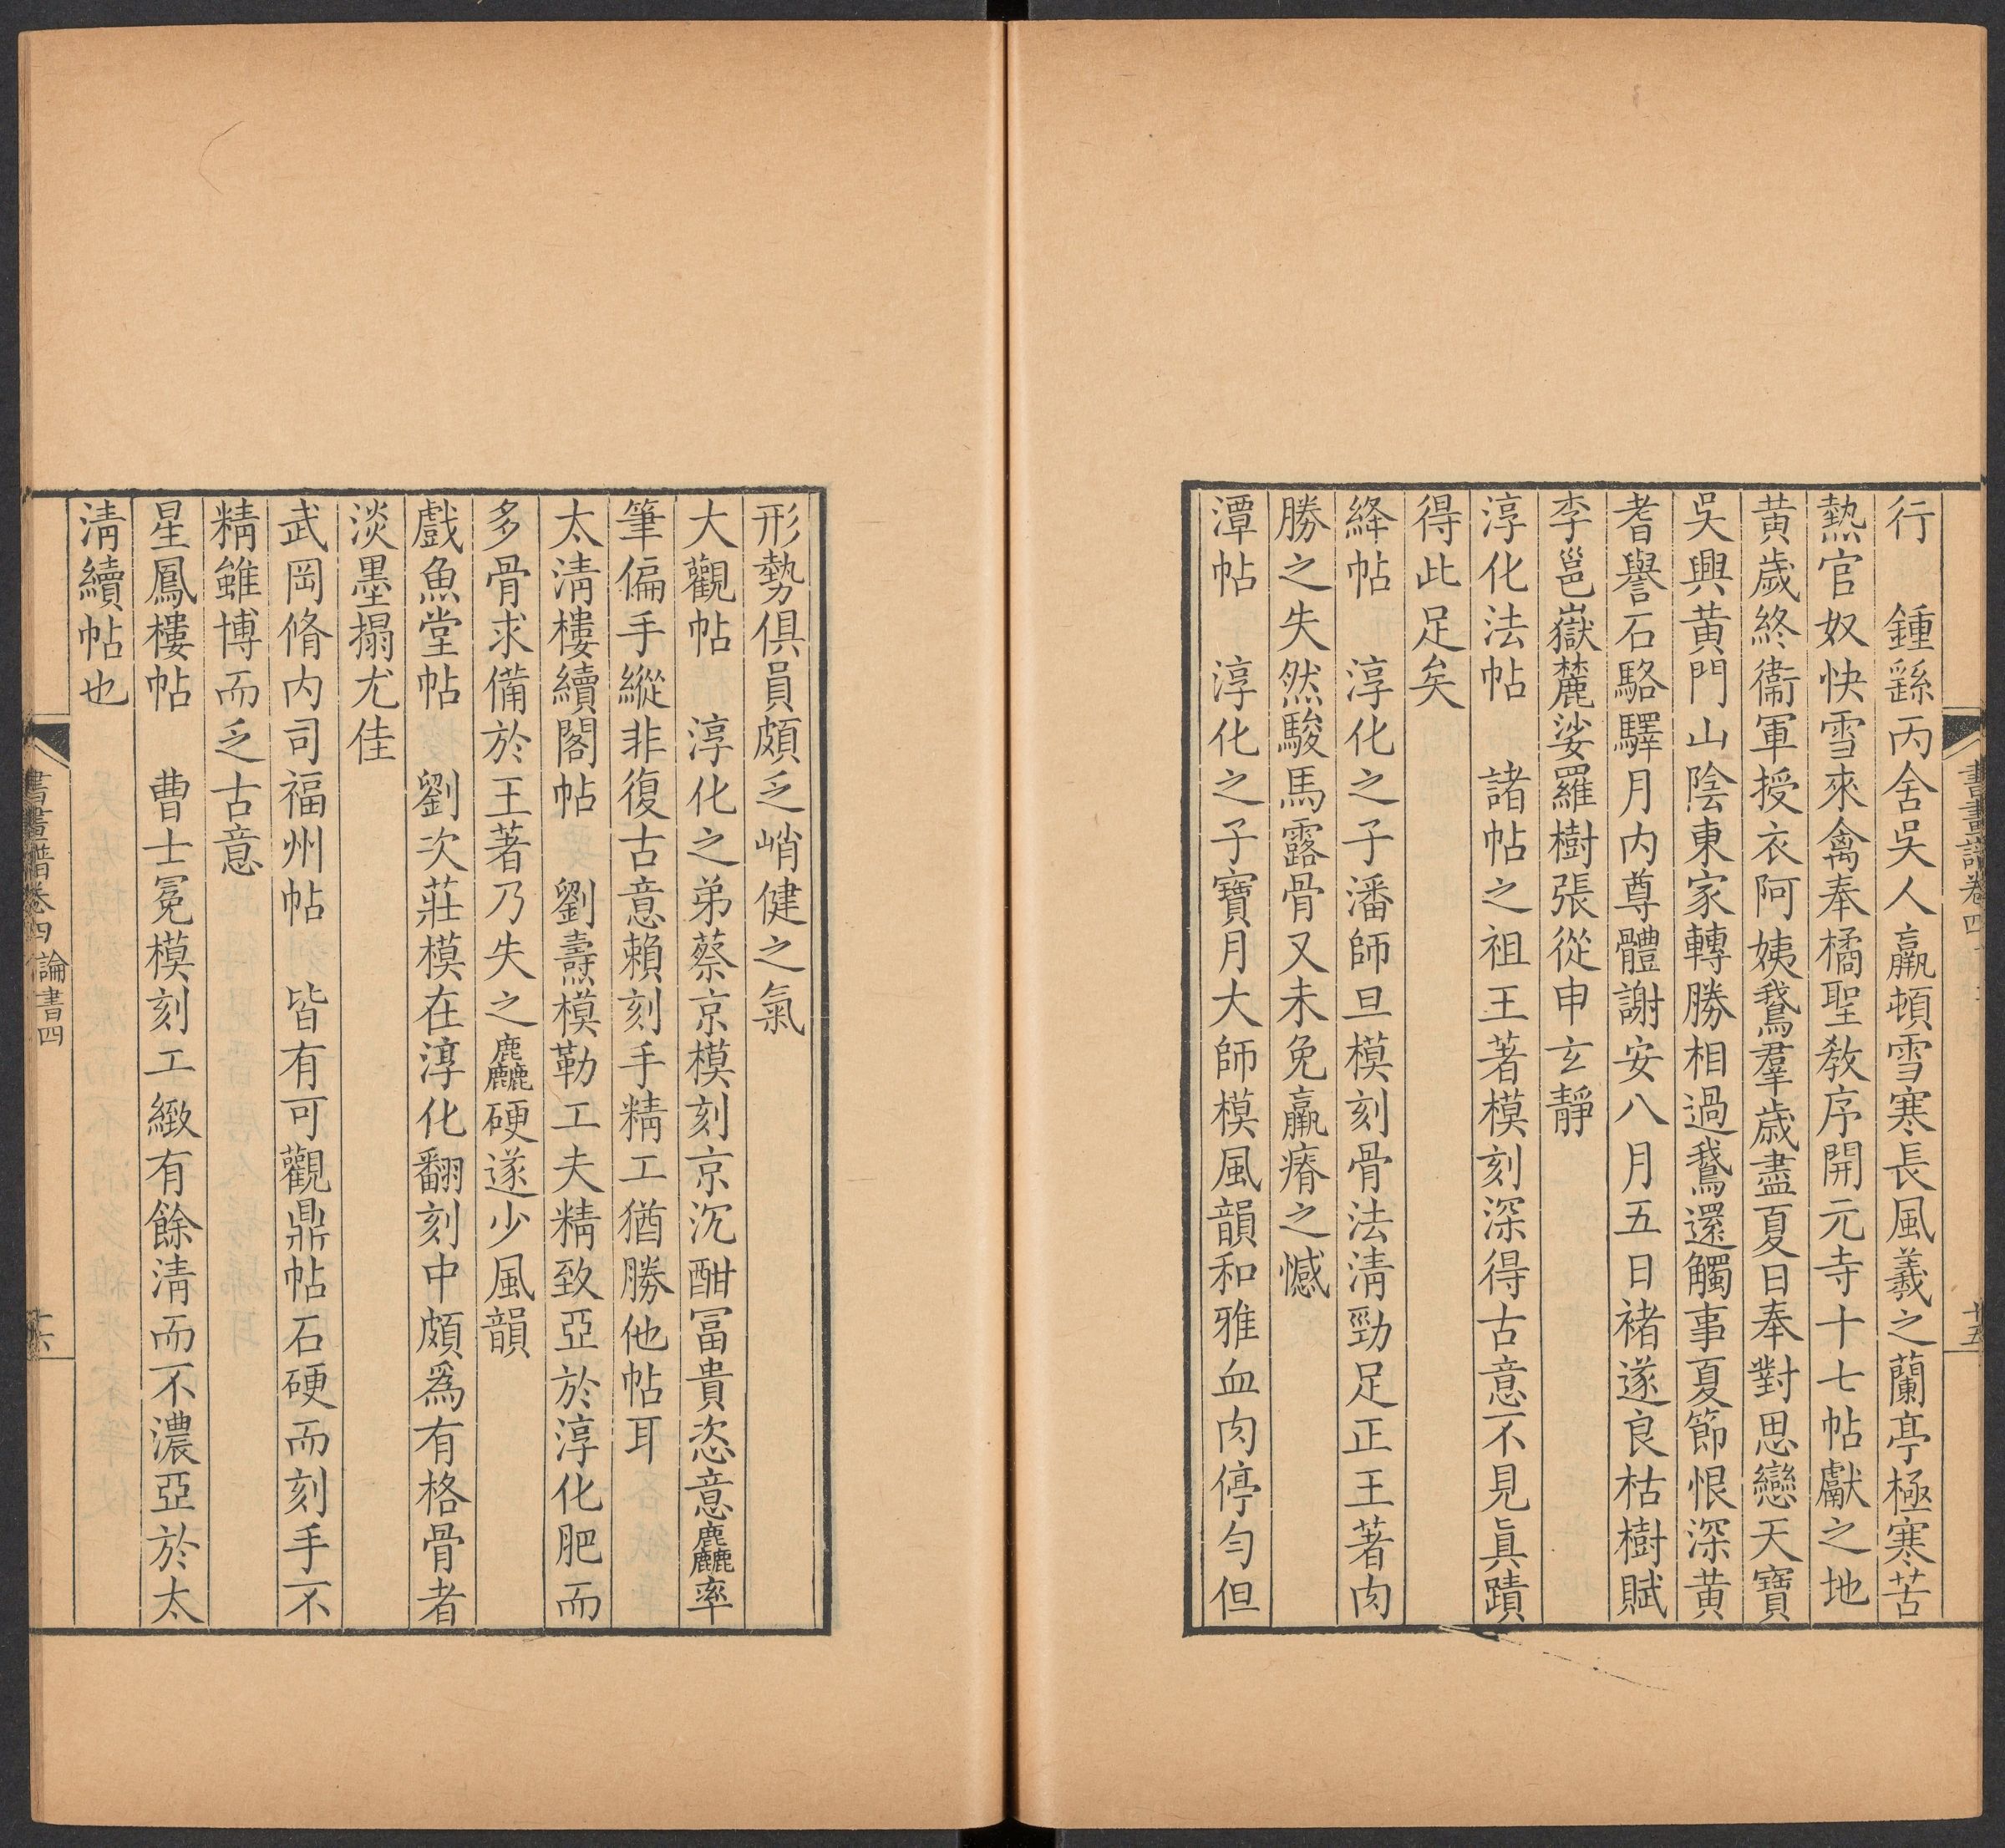 書畫譜卷四
十五
行　鍾繇丙舍吳人羸頓雪寒長風羲之蘭亭極寒苦
熱官奴快雪來禽奉橘聖教序開元寺十七帖獻之地
黃歲終衞軍授衣阿姨鵞羣歲盡夏日奉對思戀天寶
吳興黃門山陰東家轉勝相過鵞還觸事夏節恨深黃
耆譽石駱驛月内尊體謝安八月五日褚遂良枯樹賦
李邕嶽麓娑羅樹張從申玄靜
淳化法帖　諸帖之祖王著模刻深得古意不見眞蹟
得此足矣
絳帖　淳化之子潘師旦模刻骨法清勁足正王著肉
勝之失然駿馬露骨又未免羸瘠之憾
潭帖　淳化之子寶月大師模風韻和雅血肉停勻但
形勢俱員頗乏峭健之氣
大觀帖　淳化之弟蔡京模刻京沉酣冨貴恣意麤率
筆偏手縱非復古意賴刻手精工猶勝他帖耳
太清樓續閣帖　劉燾模勒工夫精致亞於淳化肥而
多骨求備於王著乃失之麤硬遂少風韻
戲魚堂帖　劉次莊模在淳化翻刻中頗爲有格骨者
淡墨搨尤佳
武岡脩内司福州帖　皆有可觀鼎帖石硬而刻手不
精雖博而乏古意
星鳳樓帖　曹士冕模刻工緻有餘清而不濃亞於太
清續帖也
書畫譜卷四 論書四
十六